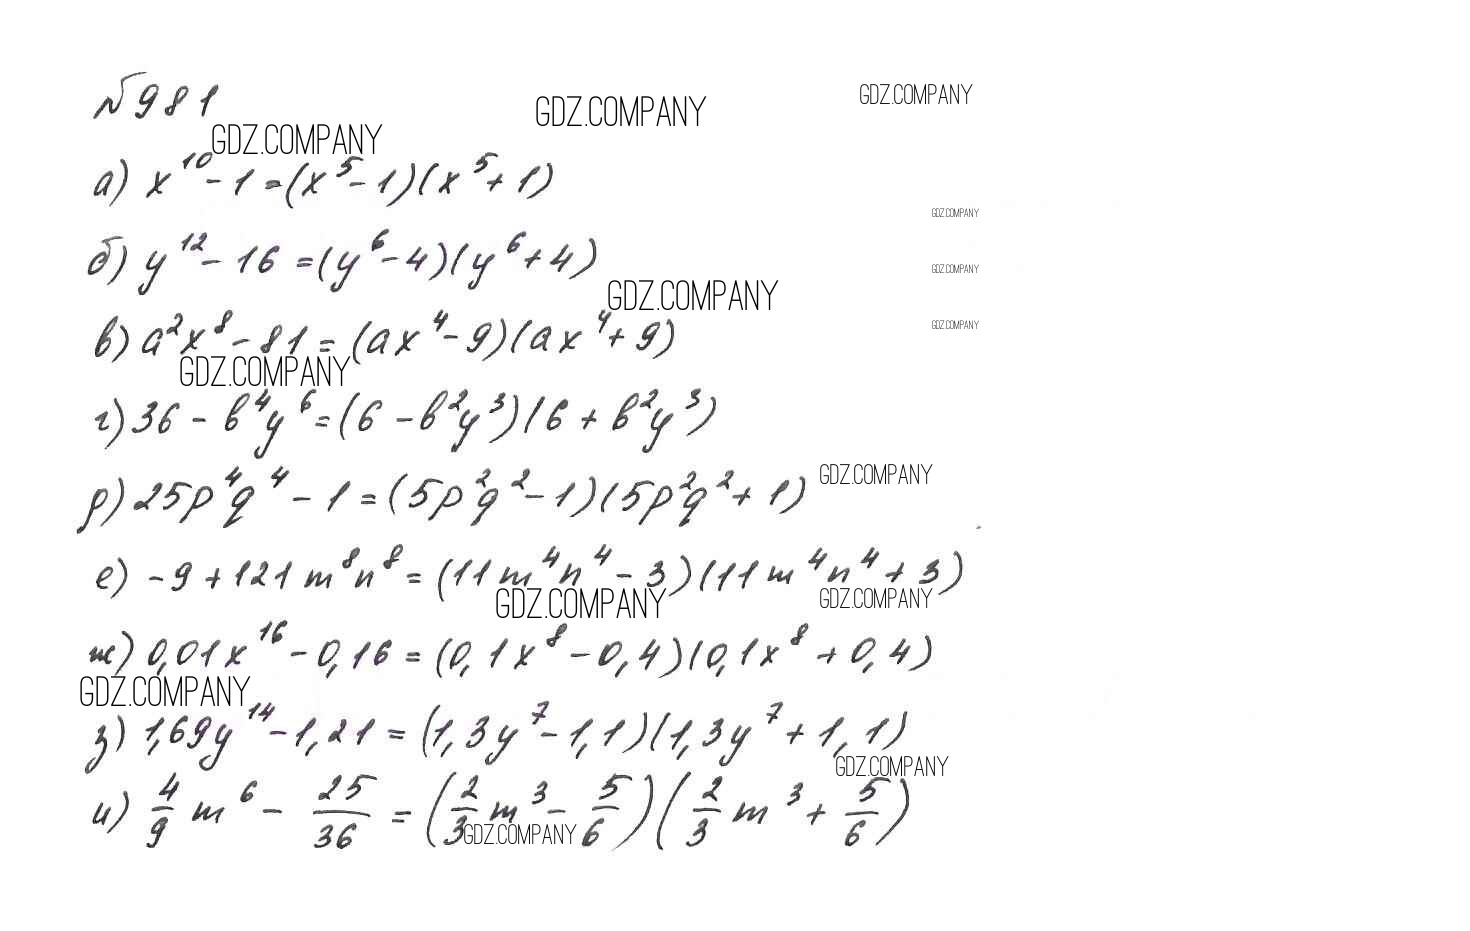 №981
GDZ.COMPANY
GDZ.COMPANY
GDZ.COMPANY
а) x¹⁰ - 1 = (x⁵ - 1)(x⁵ + 1)
GDZ.COMPANY
б) y¹² - 16 = (y⁶ - 4)(y⁶ + 4)
GDZ.COMPANY
GDZ.COMPANY
GDZ.COMPANY
в) a²x⁸ - 81 = (ax⁴ - 9)(ax⁴ + 9)
GDZ.COMPANY
г) 36 - b⁴y⁶ = (6 - b²y³)(6 + b²y³)
GDZ.COMPANY
д) 25p⁴q⁴ - 1 = (5p²q² - 1)(5p²q² + 1)
е) -9 + 121m⁸n⁸ = (11m⁴n⁴ - 3)(11m⁴n⁴ + 3)
GDZ.COMPANY
GDZ.COMPANY
ж) 0,01x¹⁶ - 0,16 = (0,1x⁸ - 0,4)(0,1x⁸ + 0,4)
GDZ.COMPANY
з) 1,69y¹⁴ - 1,21 = (1,3y⁷ - 1,1)(1,3y⁷ + 1,1)
GDZ.COMPANY
и) 4/9 m⁶ - 25/36 = (2/3 m³ - 5/6)(2/3 m³ + 5/6)
GDZ.COMPANY